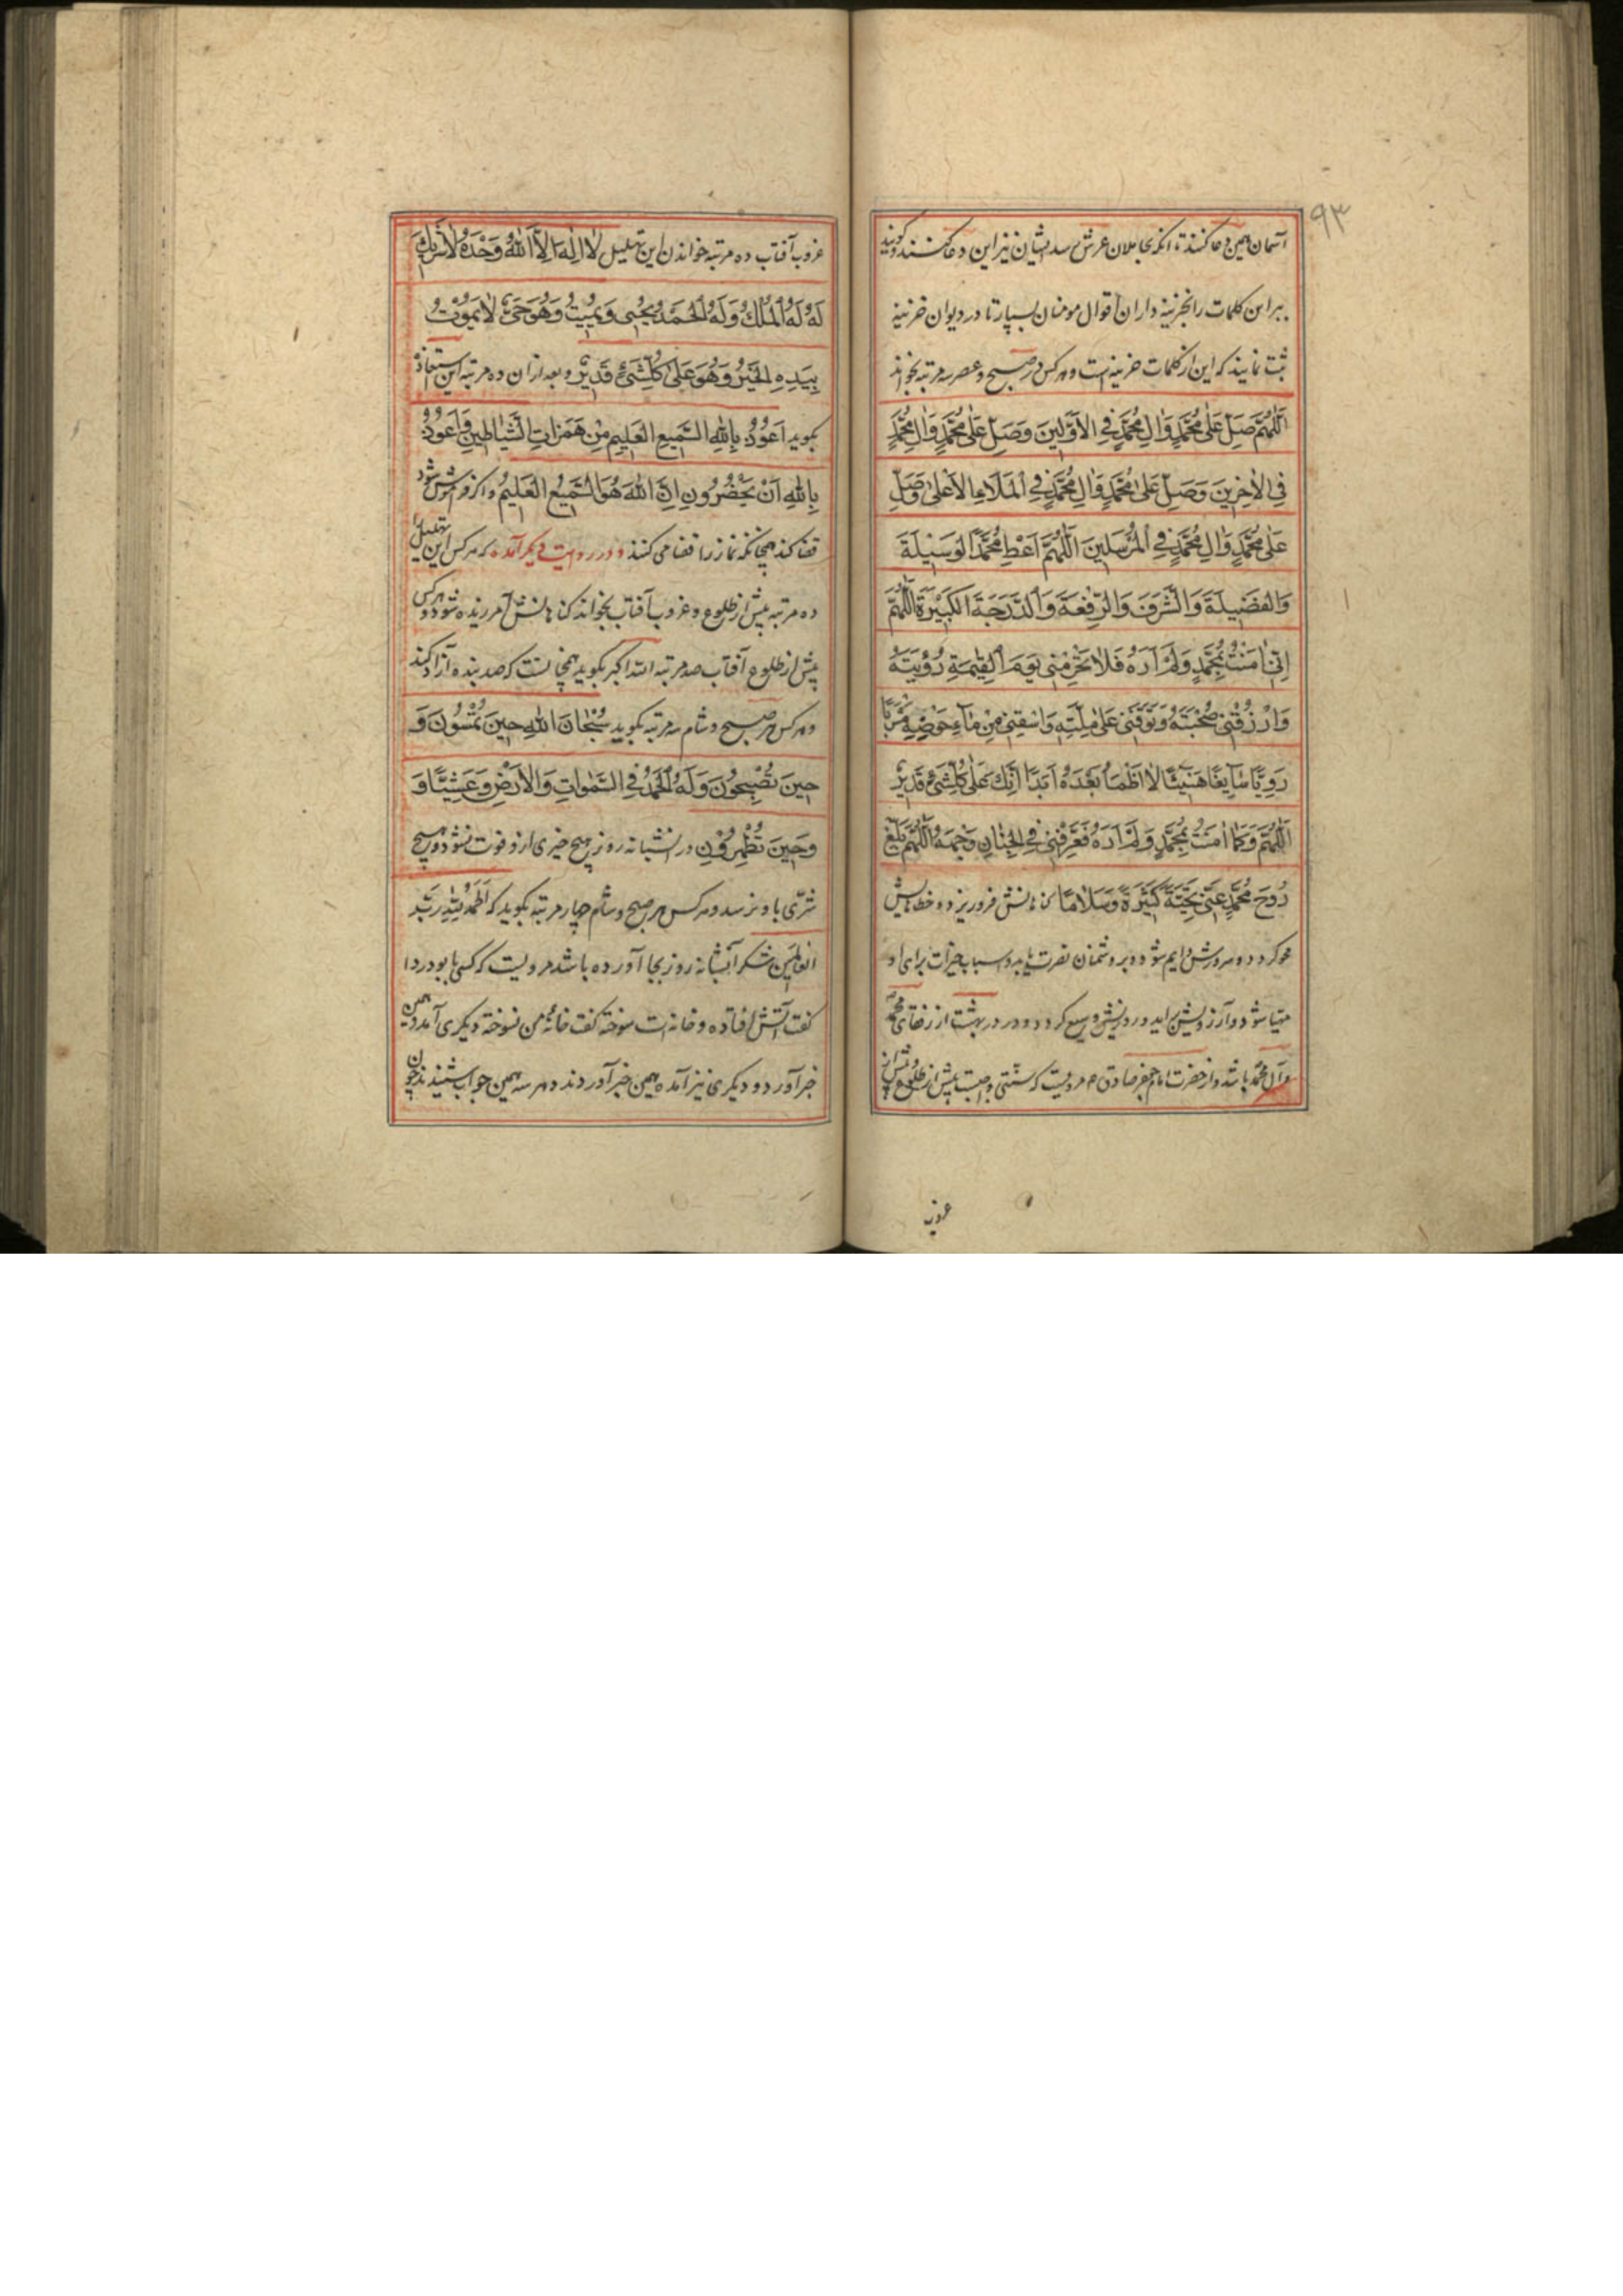 ۹۳
آسمان همین دعا کنند تا آنکه بحاملان عرش رسد ایشان نیز این دعا کنند و گویند
ببر این کلمات را بخزینه داران اقوال مومنان بسپار تا در دیوان خزینه
ثبت نمایند که این از کلمات خزینه است و هرکس در صبح و عصر سه مرتبه بخواند
اَللّٰهُمَّ صَلِّ عَلٰی مُحَمَّدٍ وَاٰلِ مُحَمَّدٍ فِی الْاَوَّلِینَ وَصَلِّ عَلٰی مُحَمَّدٍ وَاٰلِ مُحَمَّدٍ
فِی الْاٰخِرِینَ وَصَلِّ عَلٰی مُحَمَّدٍ وَاٰلِ مُحَمَّدٍ فِی الْمَلَاءِ الْاَعْلٰی وَصَلِّ
عَلٰی مُحَمَّدٍ وَاٰلِ مُحَمَّدٍ فِی الْمُرْسَلِینَ اَللّٰهُمَّ اَعْطِ مُحَمَّدًا الْوَسِیلَةَ
وَالْفَضِیلَةَ وَالشَّرَفَ وَالرِّفْعَةَ وَالدَّرَجَةَ الْکَبِیْرَةَ اَللّٰهُمَّ
اِنِّی اٰمَنْتُ بِمُحَمَّدٍ وَلَمْ اَرَهُ فَلَا تَحْرِمْنِی یَوْمَ الْقِیٰمَةِ رُؤْیَتَهُ
وَارْزُقْنِی صُحْبَتَهُ وَتَوَفَّنِی عَلٰی مِلَّتِهِ وَاسْقِنِی مِنْ مَاءِ حَوْضِهِ مَشْرَبًا
رَوِیًّا سَایِغًا هَنِیئًا لَا اَظْمَاُ بَعْدَهُ اَبَدًا اِنَّکَ عَلٰی کُلِّ شَیْءٍ قَدِیرٌ
اَللّٰهُمَّ وَکَمَا اٰمَنْتُ بِمُحَمَّدٍ وَلَمْ اَرَهُ فَعَرِّفْنِی فِی الْجِنَانِ وَجْهَهُ اَللّٰهُمَّ بَلِّغْ
رُوحَ مُحَمَّدٍ عَنِّی تَحِیَّةً کَثِیرَةً وَسَلَامًا گناهانش فرو ریزد و خطاهایش
محو گردد و سرورش دایم شود و بر دشمنان نصرت یابد و اسباب خیرات برای او
مهیا شود و آرزویش برآید و روزیش وسیع گردد و در بهشت از رفقای محمد
و آل محمد باشد و از حضرت امام جعفر صادق ع مرویست که سنتی واجبست پیش از طلوع و پیش از
غروب
غروب آفتاب ده مرتبه خواندن این تهلیل لَا اِلٰهَ اِلَّا اللّٰهُ وَحْدَهُ لَا شَرِیكَ
لَهُ لَهُ الْمُلْكُ وَلَهُ الْحَمْدُ یُحْیِی وَیُمِیتُ وَهُوَ حَیٌّ لَا یَمُوْتُ
بِیَدِهِ الْخَیْرُ وَهُوَ عَلٰی کُلِّ شَیْءٍ قَدِیرٌ و بعد از آن ده مرتبه این استعاذه
بگوید اَعُوْذُ بِاللّٰهِ السَّمِیعِ الْعَلِیمِ مِنْ هَمَزَاتِ الشَّیَاطِینِ وَاَعُوْذُ
بِاللّٰهِ اَنْ یَحْضُرُونِ اِنَّ اللّٰهَ هُوَ السَّمِیعُ الْعَلِیمُ و اگر فراموش شود
قضا کند همچنانکه نماز را قضا می کنند و در روایت دیگر آمده که هر کس این تهلیل
ده مرتبه پیش از طلوع و غروب آفتاب بخواند گناهانش آمرزیده شود و هر کس
پیش از طلوع آفتاب صد مرتبه الله اکبر بگوید همچنانست که صد بنده آزاد کند
و هر کس هر صبح و شام سه مرتبه بگوید سُبْحَانَ اللّٰهِ حِینَ تُمْسُونَ وَ
حِینَ تُصْبِحُونَ وَلَهُ الْحَمْدُ فِی السَّمٰوَاتِ وَالْاَرْضِ وَعَشِیًّا وَ
وَحِینَ تُظْهِرُوْنَ در آن شبانه روز هیچ خیری از و فوت نشود و هیچ
شرّی باو نرسد و هر کس هر صبح و شام چهار مرتبه بگوید که اَلْحَمْدُ لِلّٰهِ رَبِّ
الْعَالَمِینَ شکر آن شبانه روز بجا آورده باشد مرویست که کسی بابو دردا
گفت آتش افتاده و خانه ات سوخته گفت خانهٔ من نسوخته دیگری آمد و همین
خبر آورد و دیگری نیز آمده همین خبر آوردند و هر سه همین جواب شنیدند چون